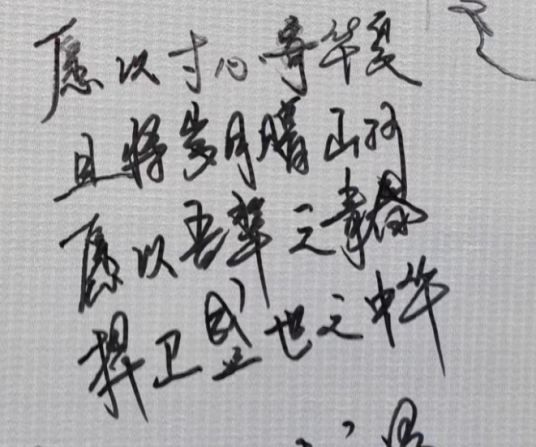 愿以寸心寄华夏
且将岁月赠山河
愿以吾辈之青春
捍卫盛世之中华